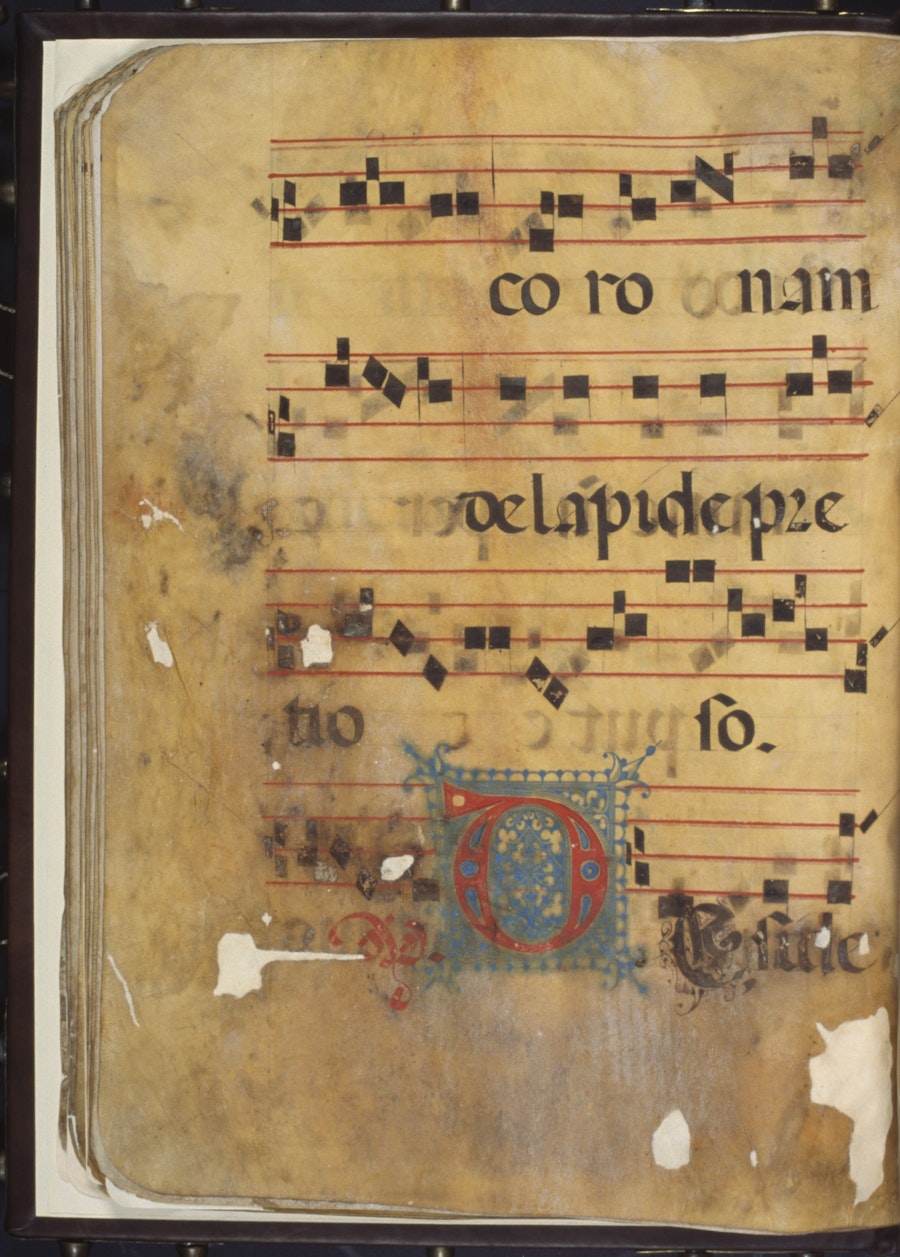 co ro nam
de lapide pre
tio so.
D Eside